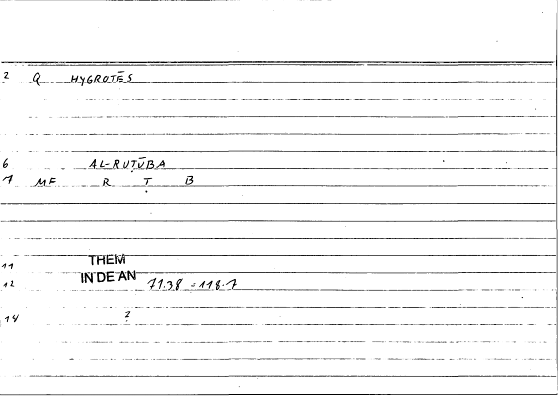 2 Q HYGROTĒS
6 AL-RUṬŪBA
7 MF R Ṭ B
11 THEM
12 IN DE AN 71.38 = 118.7
14 2